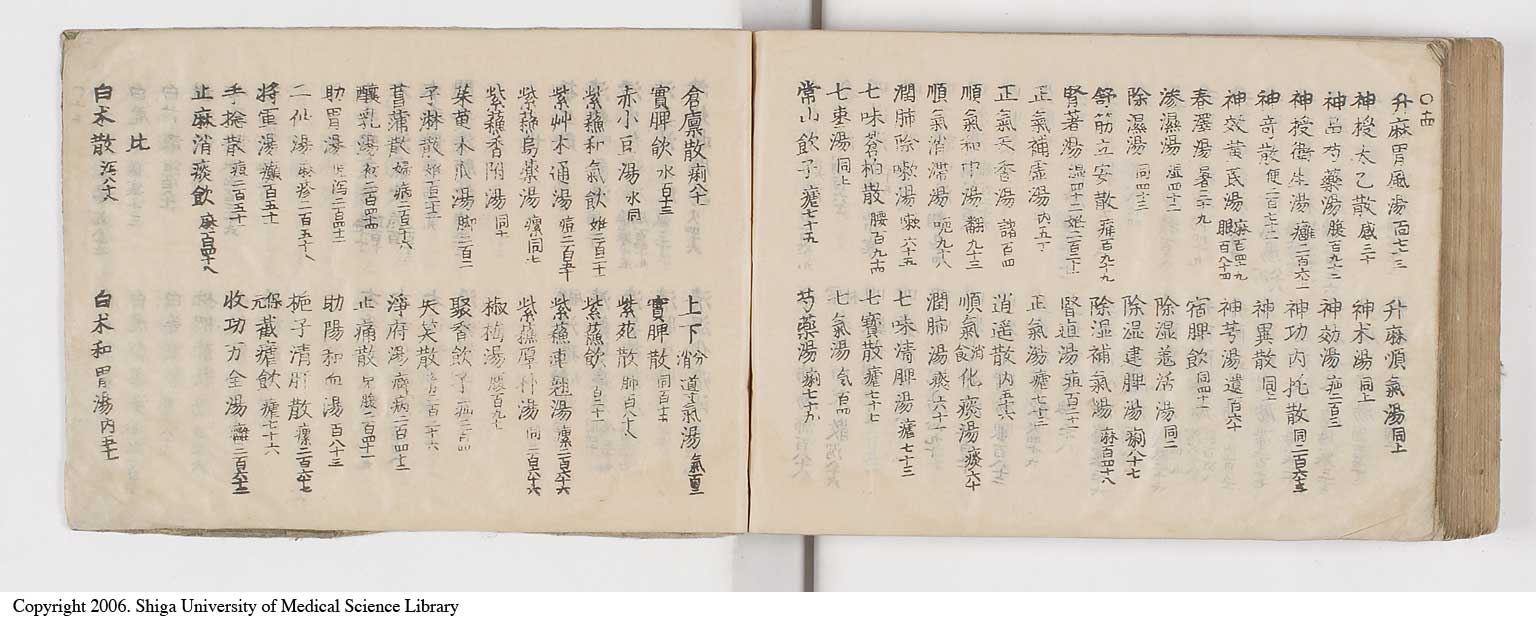 升麻胃風湯 百七十三
升麻順氣湯 同上
神授太乙散 感三十
神朮湯 同上
神呂芍藥湯 腰百九十二
神効湯 疝二百三
神授衛生湯 癰二百六十一
神功內托散 同二百六十三
神奇散 便二百七十一
神異散 同上
神效黃芪湯 麻百四十九 眼百八十四
神芎湯 遺百六十
春澤湯 暑二十九
宿脾飲 同四十一
滲濕湯 濕四十一
除湿羗活湯 同二
除濕湯 同四十三
除湿建脾湯 痢八十七
舒筋立安散 痹百九十九
除湿補氣湯 麻百四十八
腎著湯 濕四十二
腎疸湯 疸百二十一
正氣補虛湯 內五十
正氣湯 瘧七十三
正氣天香湯 諸百四
逍遥散 內五十六
順氣和中湯 翻九十三
順氣消食化痰湯 痰六十
順氣消滯湯 呃九十八
潤肺湯 痰六十一
潤肺除嗽湯 嗽六十五
七味清脾湯 瘧七十三
七味蒼柏散 腰百九十四
七寶散 瘧七十七
七棗湯 同上
七氣湯 氣百四
常山飲子 瘧七十五
芍藥湯 痢七十九
倉廩散 痢八十
上下分消導氣湯 氣百三
實脾飲 水百十三
實脾散 同百十五
赤小豆湯 水同
紫菀散 肺百八十八
紫蘓和氣飲 姙二百二十
紫蘓飲 百二十一
紫艸木通湯 痘二百五十
紫蘓連翹湯 瘰二百六十六
紫蘓烏藥湯 瘰同七
紫蘓厚朴湯 同二百六十六
紫蘓香附湯 同十
椒梅湯 腹百九十
茱萸木瓜湯 脚二百二
聚香飲子 疝二百四
子淋散 姙百二十三
失笑散
菖蒲散 婦病二百十六
淨府湯 癖病二百四十三
釀乳湯
止痛散
助胃湯 吐瀉二百四十二
助陽和血湯 百八十三
二仙湯 麻疹二百五十八
梔子清肝散 瘰二百六十七
將軍湯 癲百五十
保元截瘧飲 瘧七十六
手捻散 痘二百五十
收功万全湯 癰二百六十二
止麻消痰飲 麻百四十八
比
白朮散 泻八丈
白朮和胃湯 內五十七